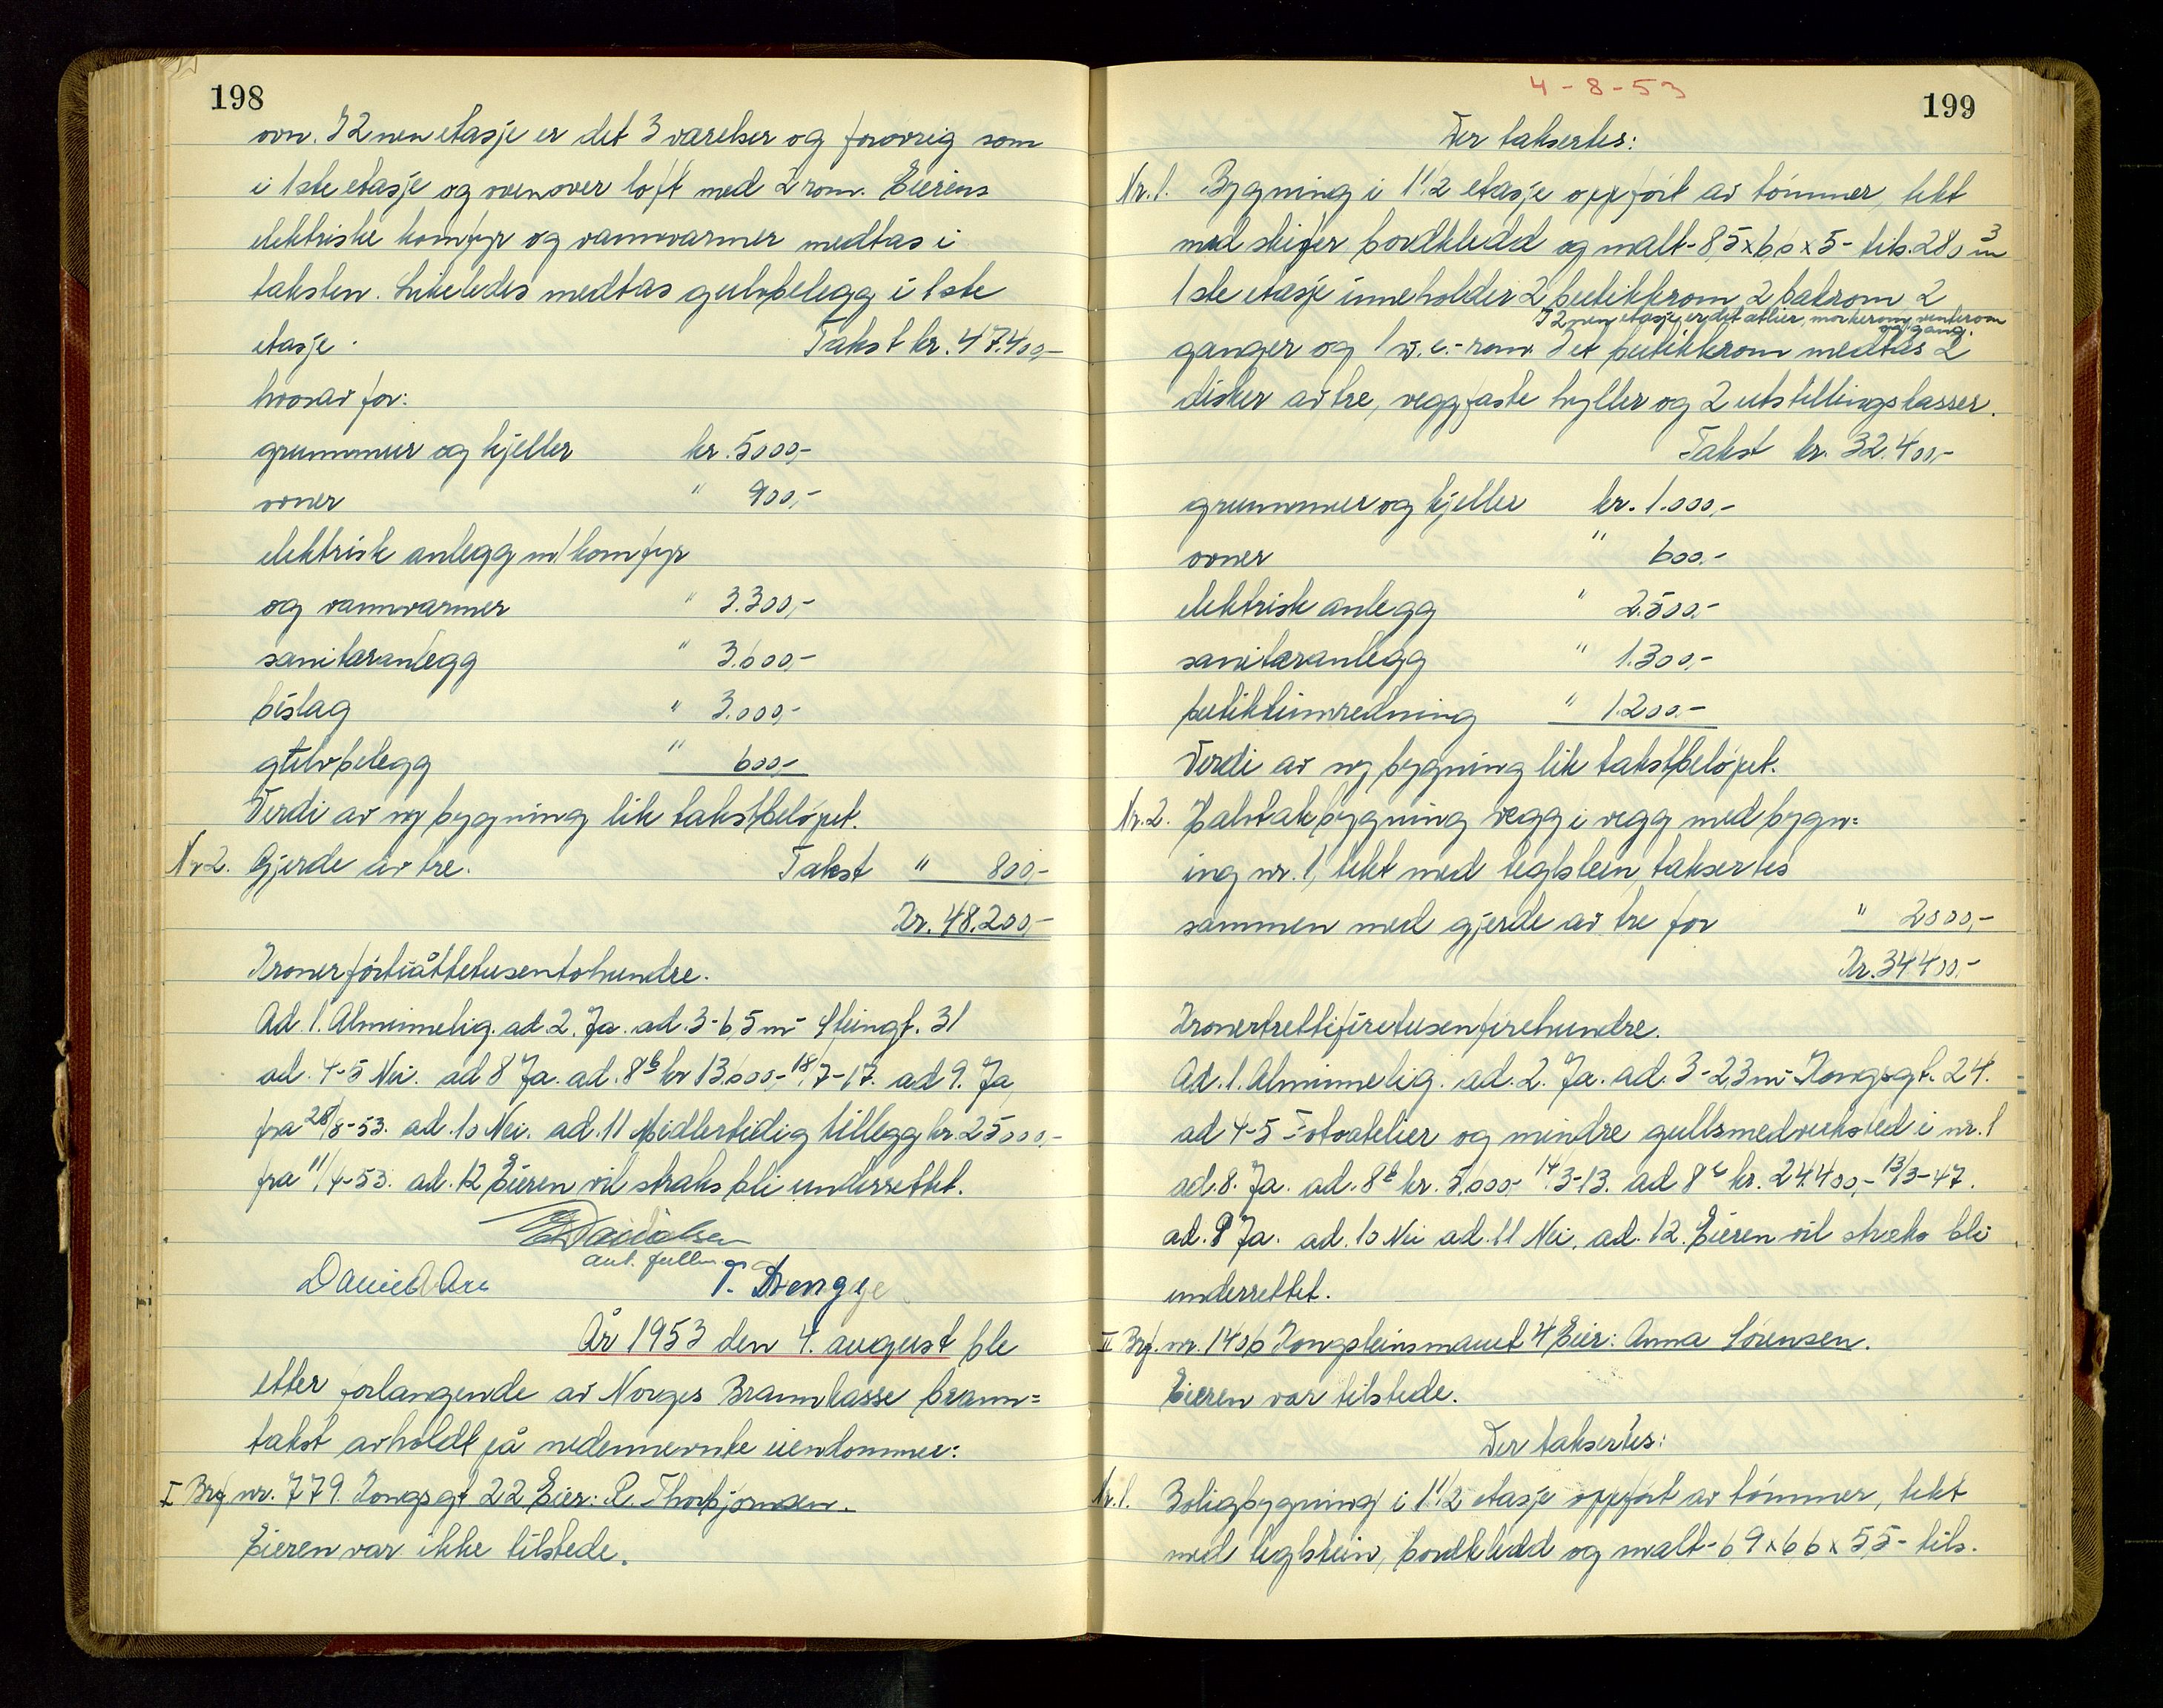 198
ovn. I 2nen etasje er det 3 værelser og forøvrig som
i 1ste etasje og ovenover loft med 2 rom. Eierens
elektriske komfyr og vannvarmer medtas i
taksten. Likeledes medtas gulvbelegg i 1ste
etasje. Takst kr. 47.400,-
hvorav for:
grunnmur og kjeller kr. 5000,-
ovner " 900,-
elektrisk anlegg m/komfyr
og vannvarmer " 3.300,-
sanitæranlegg " 3.600,-
bislag " 3.000,-
gulvbelegg " 600,-
Verdi av ny bygning lik takstbeløpet.
Nr 2. Gjerde av tre. Takst " 800,-
Kr. 48.200,-
Kronerførtiåttetusentohundre.
Ad. 1. Alminnelig. ad. 2. Ja. ad. 3-6,5 m- Steingt. 31
ad. 4-5 Nei. ad 8 Ja. ad. 8b kr 13.000,- 18/7-17. ad 9. Ja,
fra 28/8-53. ad. 10 Nei. ad. 11 Midlertidig tillegg kr. 25000,-
fra 11/4-53. ad. 12 Eieren vil straks bli underrettet.
T. Drengge
År 1953 den 4. august ble
etter forlangende av Norges Brannkasse brann=
takst avholdt på nedennevnte eiendommer:
I Brf nr. 779. Kongsgt 22 Eier: R. Thorbjørnsen.
Eieren var ikke tilstede.
4-8-53
199
Der taksertes:
Nr. 1. Bygning i 1 1/2 etasje oppført av tømmer, tekt
med skifer bordkledd og malt- 8,5 x 6,6 x 5- tils. 280 m3
1ste etasje inneholder 2 butikkrom, 2 bakrom 2
I 2nen etasje er det atlier, mørkerom, venterom
og gang.
ganger og 1 w.c.-rom. I et butikkrom medtas 2
disker av tre, veggfaste hyller og 2 utstillingskasser.
Takst kr. 32.400,-
grunnmur og kjeller kr. 1.000,-
ovner " 600.-
elektrisk anlegg " 2.500.-
sanitæranlegg " 1.300,-
butikkinnredning " 1.200.-
Verdi av ny bygning lik takstbeløpet.
Nr. 2. Halvtakbygning vegg i vegg med bygn=
ing nr. 1, tekt med teglstein, taksertes
sammen med gjerde av tre for " 2000,-
Kr. 34400,-
Kronertrettifiretusenfirehundre.
Ad. 1. Alminnelig. ad. 2. Ja. ad. 3-2,3 m- Kongsgt. 24.
ad 4-5 Fotoatelier og mindre gullsmedverksted i nr. 1
ad. 8. Ja. ad. 8b kr. 5.000,- 14/3-13. ad 8c kr. 24.400,- 13/3-47.
ad. 9 Ja. ad. 10 Nei ad. 11 Nei. ad. 12. Eieren vil straks bli
underrettet.
II Brf. nr. 140b Kongsteinsmauet 4 Eier: Anna Sørensen.
Eieren var tilstede.
Der taksertes:
Nr. 1. Boligbygning i 1 1/2 etasje oppført av tømmer, tekt
med teglstein, bordkledd og malt- 6,9 x 6,6 x 5,5- tils.